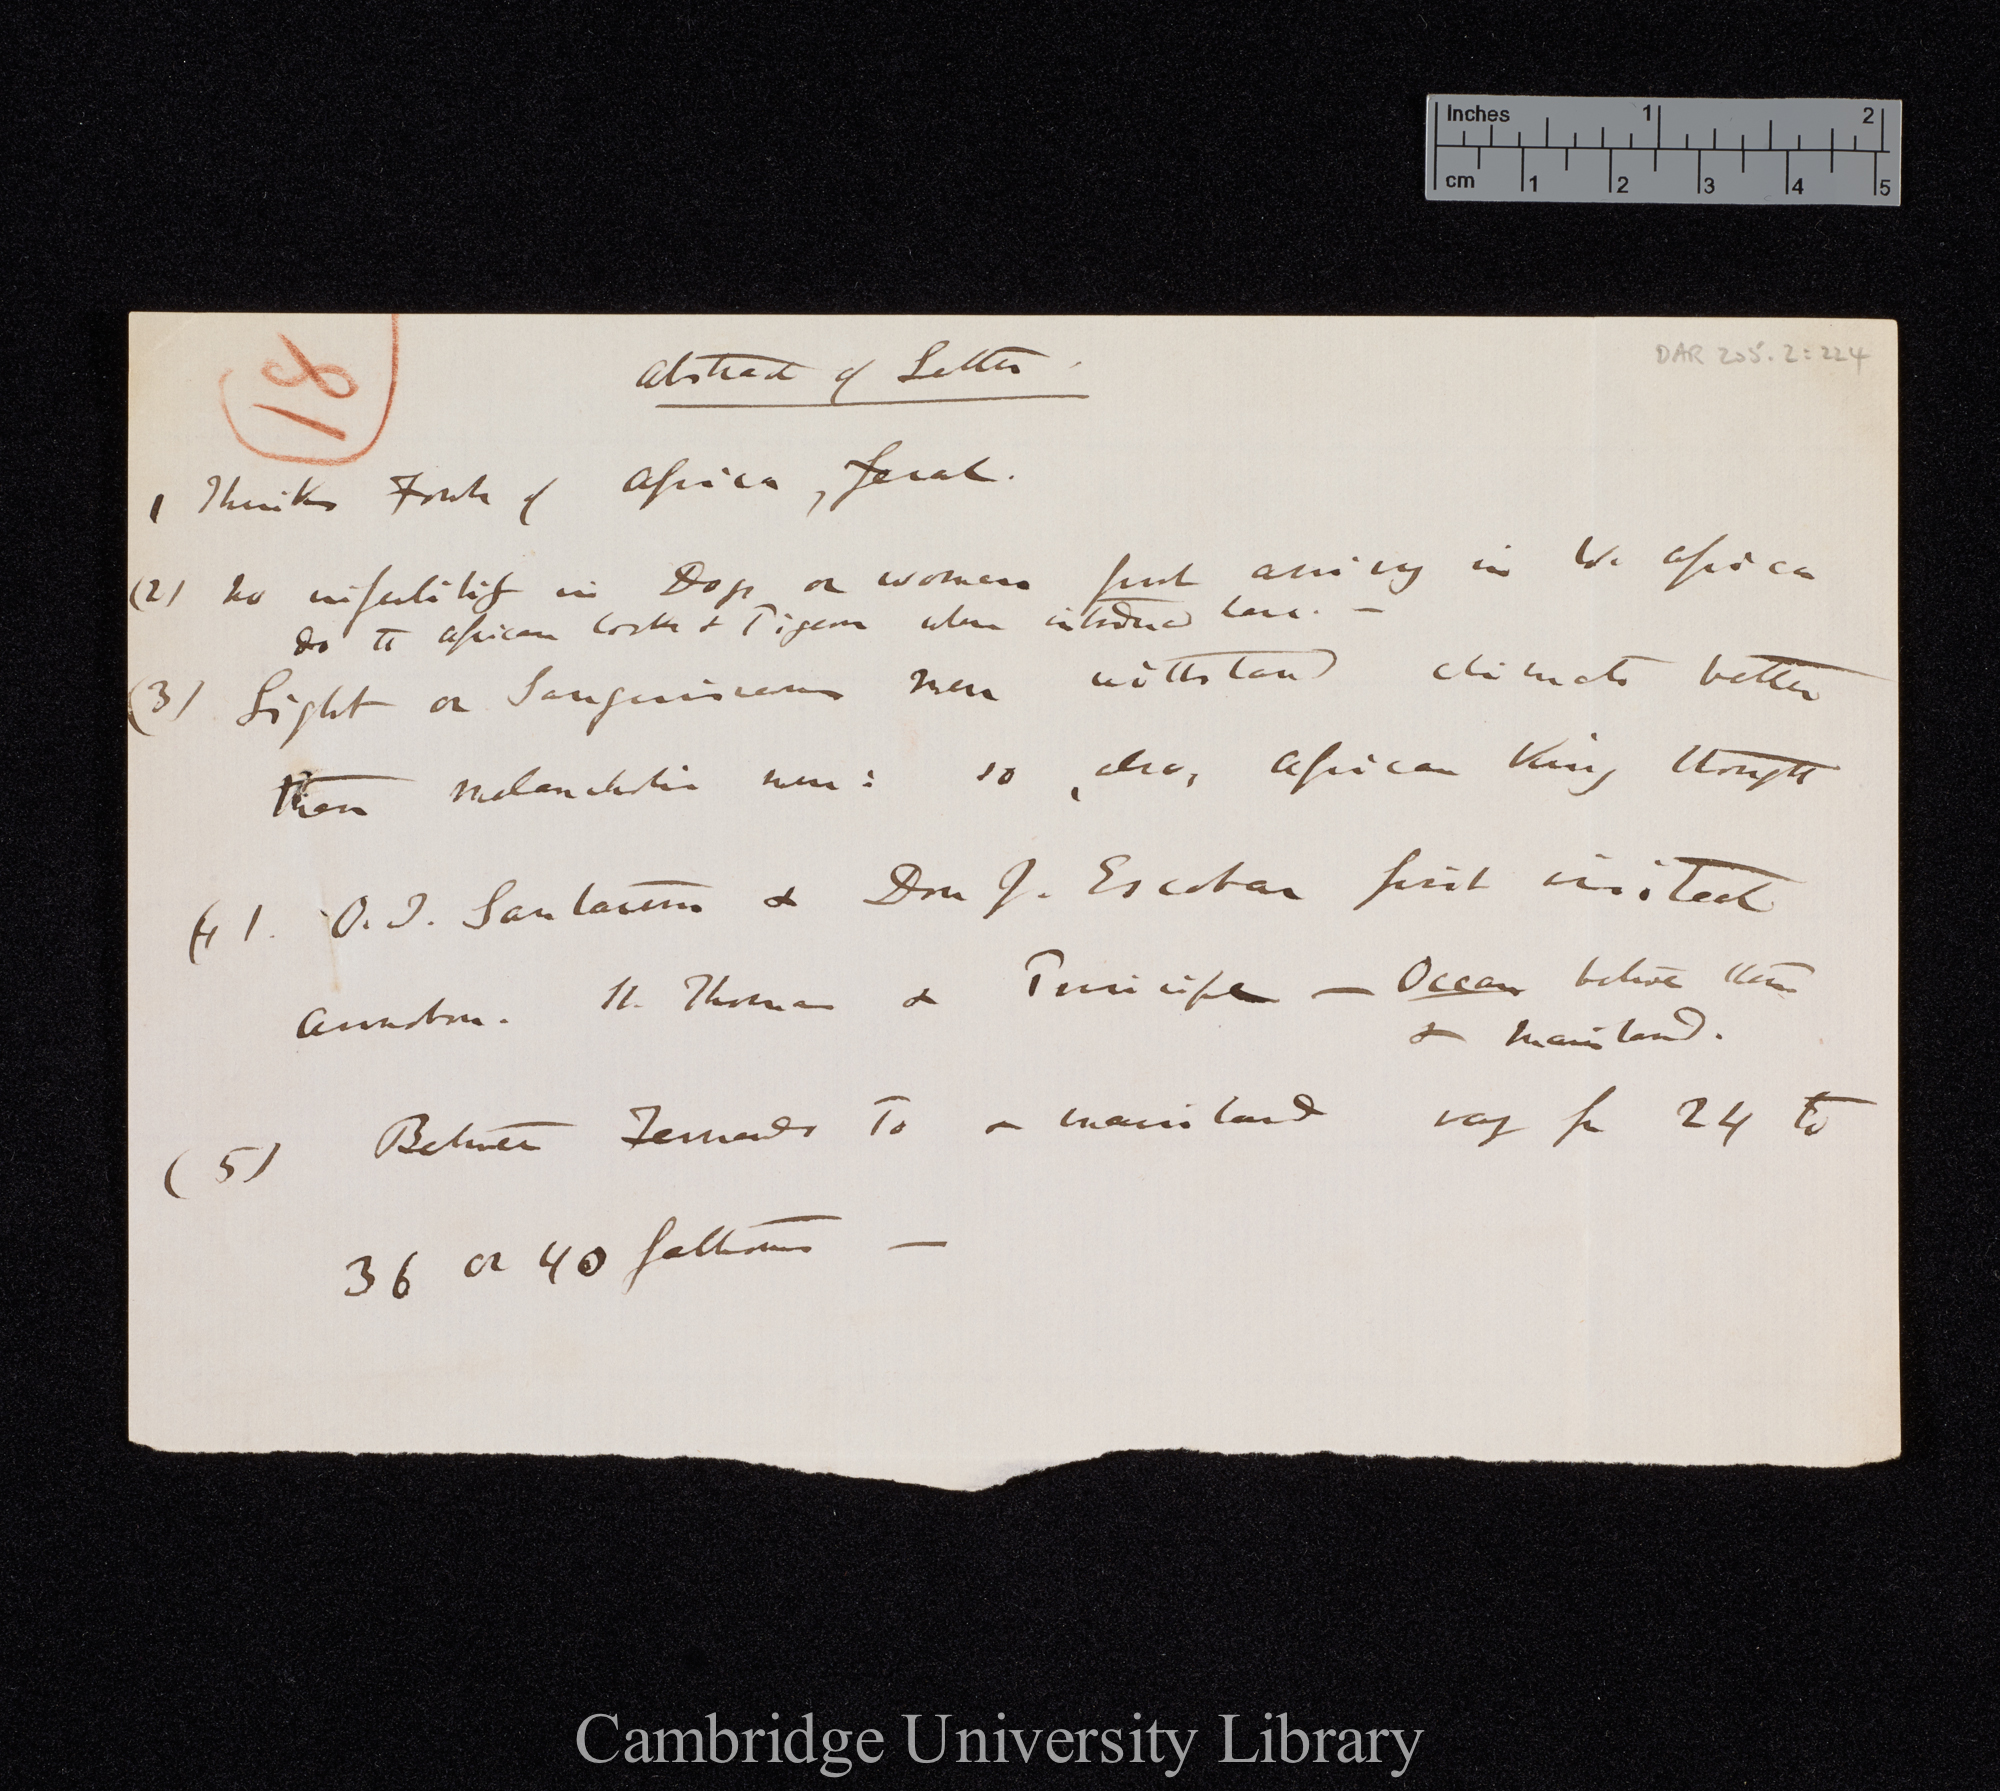 Inches 1 2
cm 1 2 3 4 5
18
DAR 205.2:224
Abstract of Letter.
1 Thinks Fowls of Africa, feral.
(2) No infertility in Dogs or women first arriving in W. Africa
do to African Cocks & Pigeons when introduced here. —
(3) Light or Sanguineous men withstand climate better
than melancholic men: so also, African King thought
(4). Santarem & Don J. Escobar first visited
Annobon. St. Thomas & Princípe — Ocean between them
& mainland.
(5) Between Fernando Po & mainland vary fr 24 to
36 or 40 fathoms —
Cambridge University Library